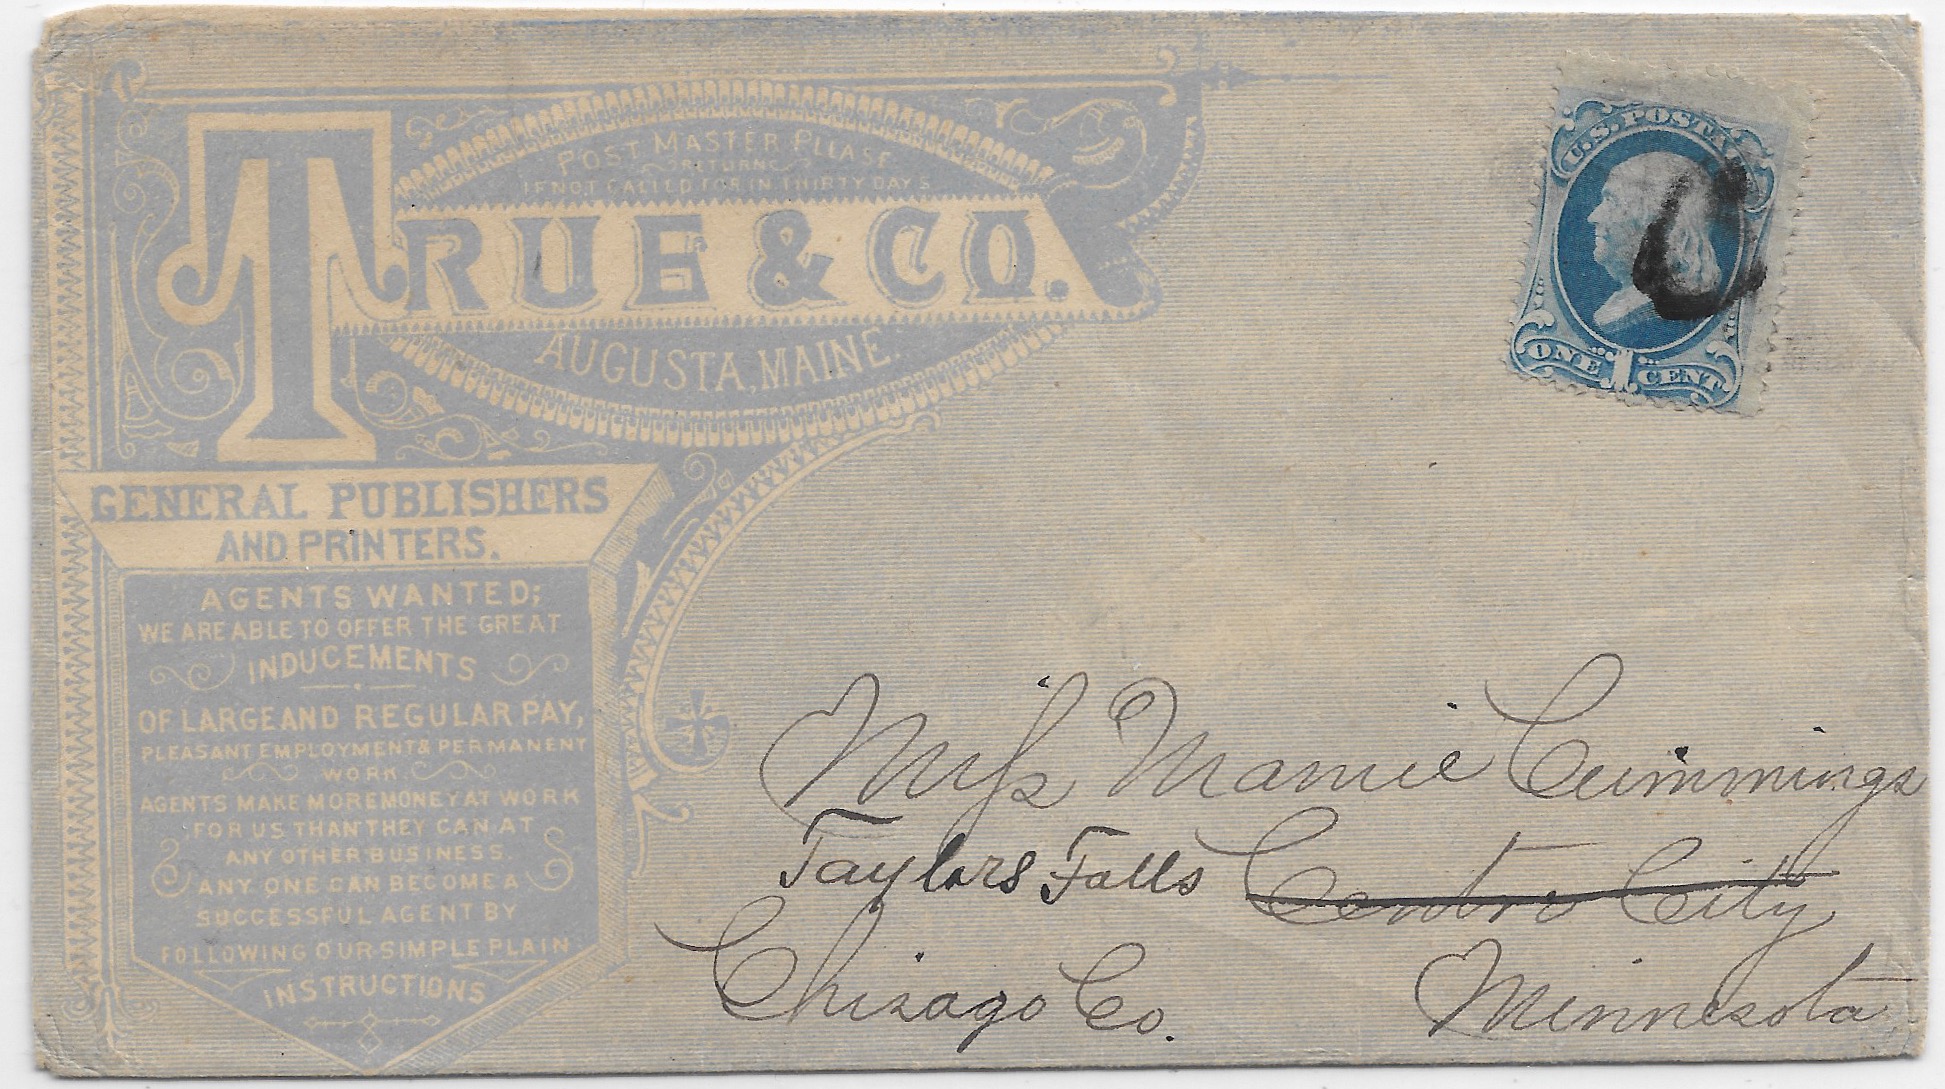 POST MASTER PLEASE
RETURN
IF NOT CALLED FOR IN THIRTY DAYS
TRUE & CO.
AUGUSTA, MAINE.
GENERAL PUBLISHERS
AND PRINTERS.
AGENTS WANTED;
WE ARE ABLE TO OFFER THE GREAT
INDUCEMENTS
OF LARGE AND REGULAR PAY,
PLEASANT EMPLOYMENT & PERMANENT
WORK.
AGENTS MAKE MORE MONEY AT WORK
FOR US THAN THEY CAN AT
ANY OTHER BUSINESS.
ANY ONE CAN BECOME A
SUCCESSFUL AGENT BY
FOLLOWING OUR SIMPLE PLAIN
INSTRUCTIONS
U.S. POSTA
ONE 1 CENT
Miss Mamie Cummings
Taylors Falls Centre City
Chisago Co. Minnesota